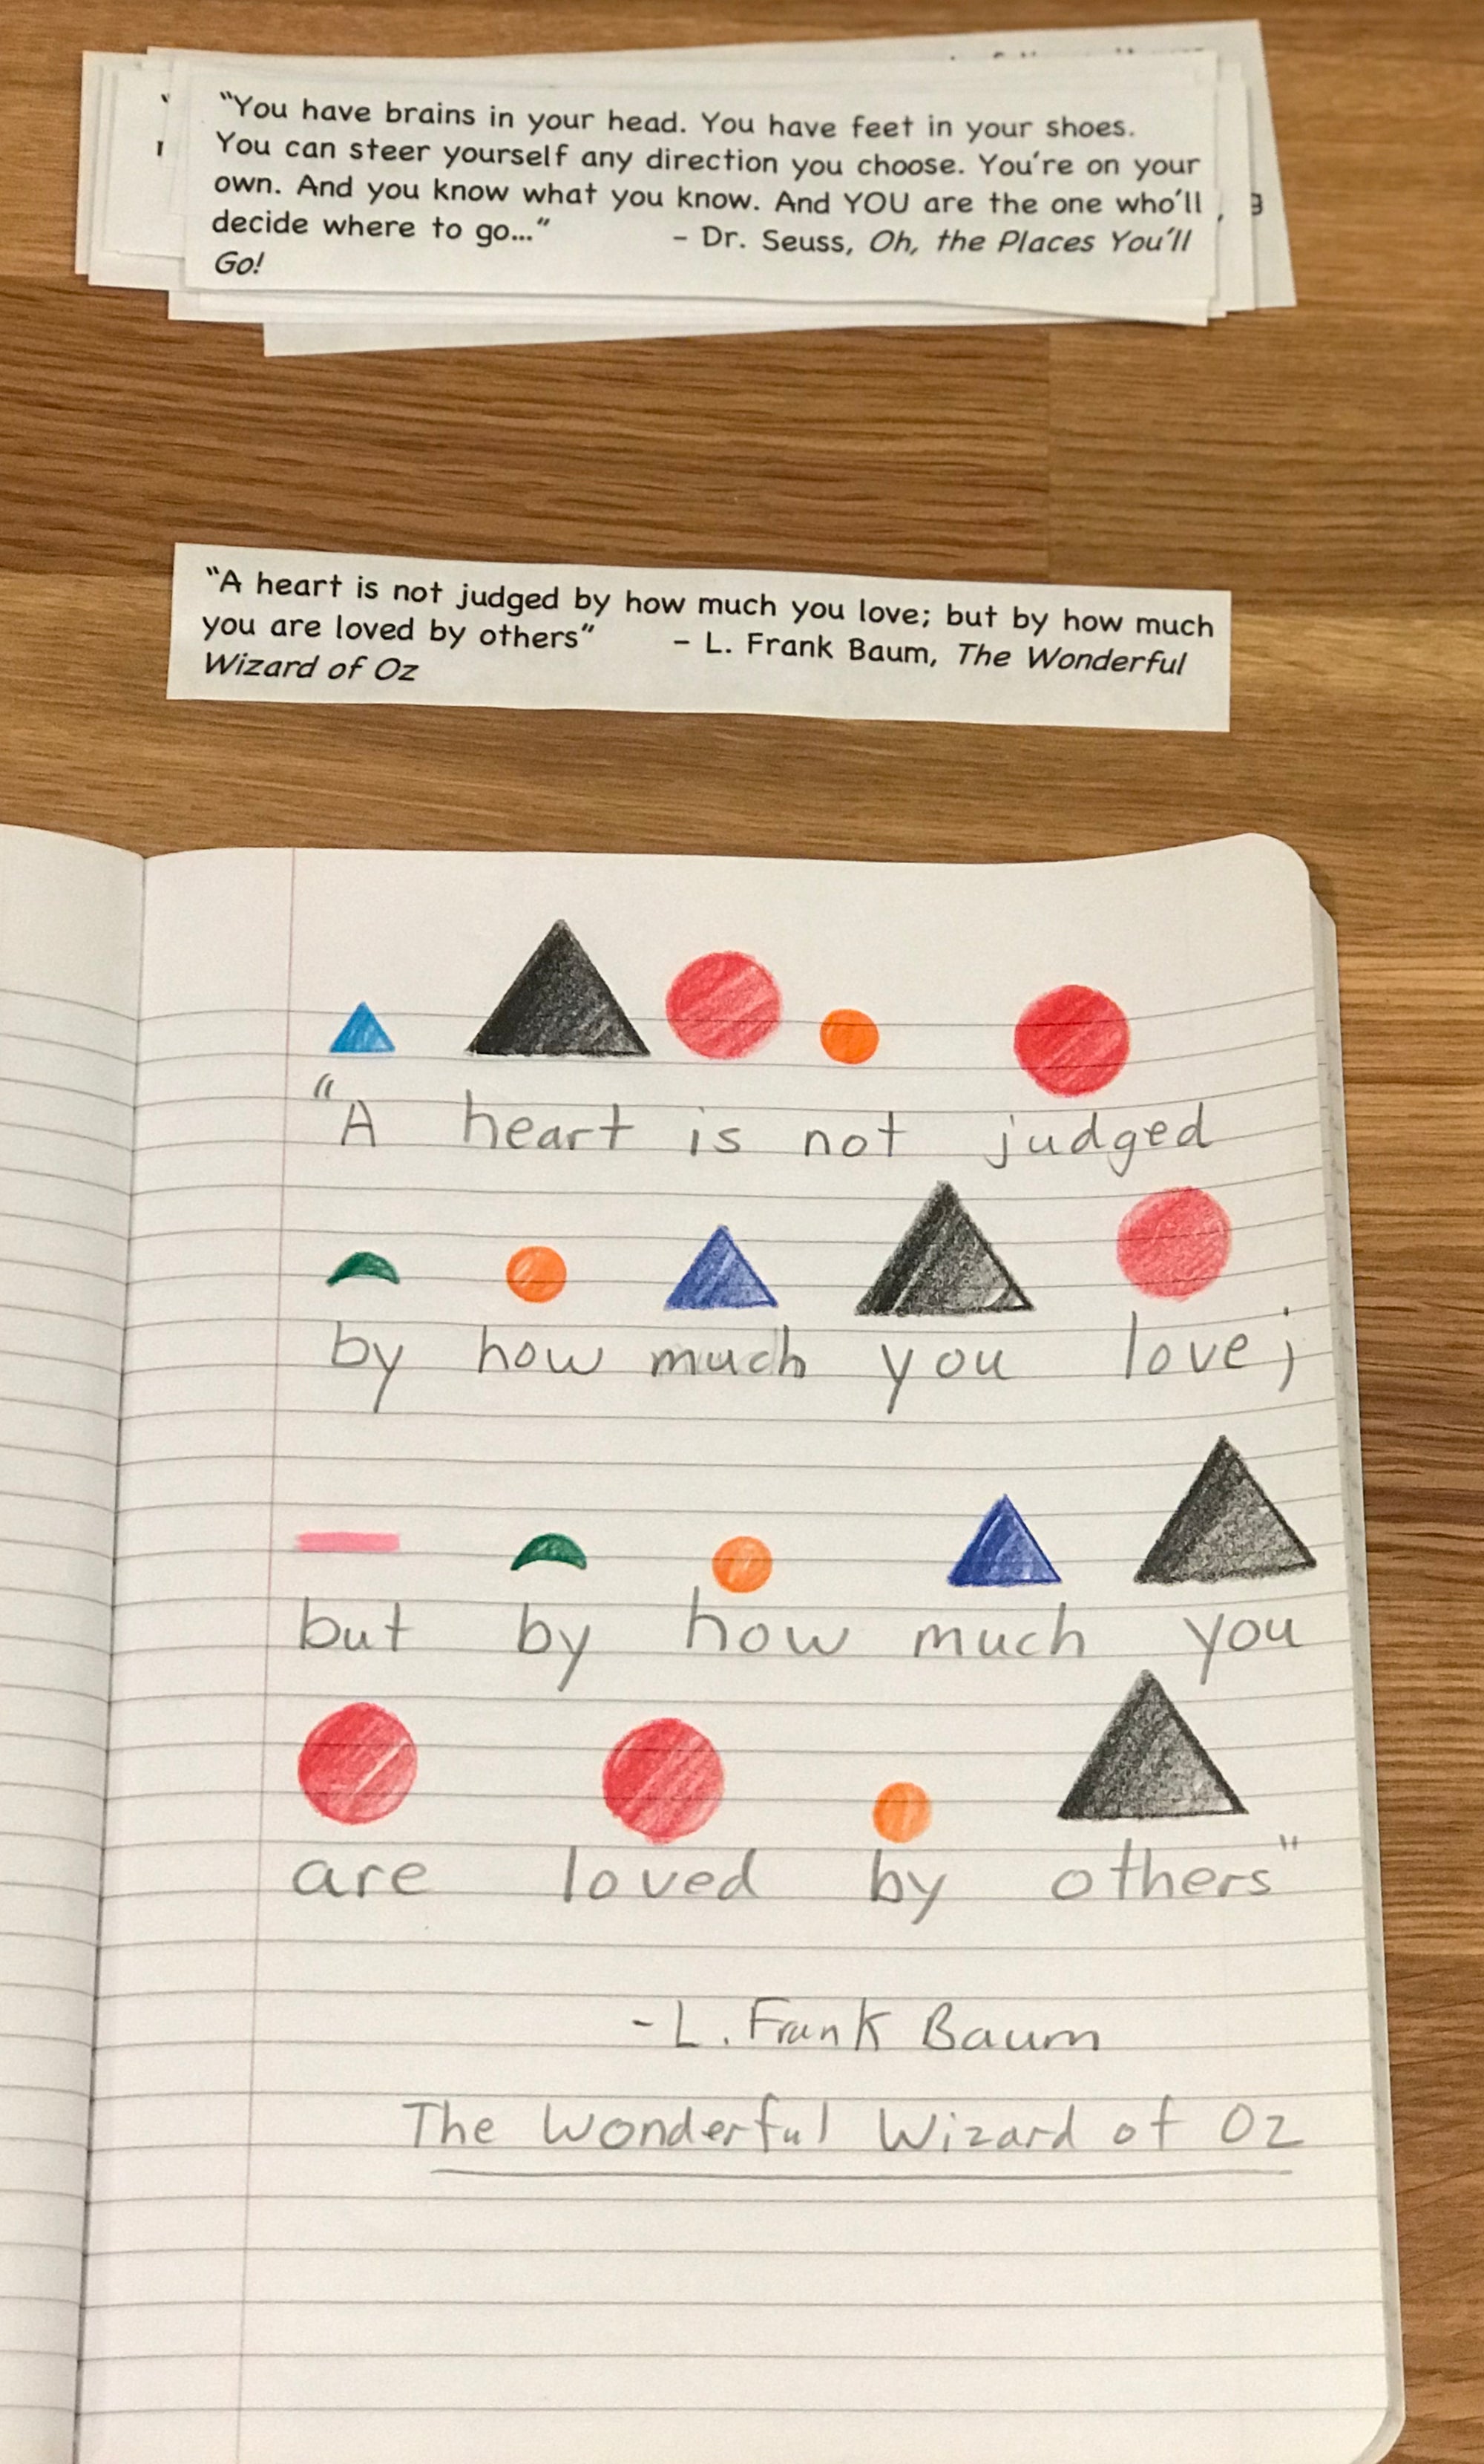 "You have brains in your head. You have feet in your shoes.
You can steer yourself any direction you choose. You're on your
own. And you know what you know. And YOU are the one who'll
decide where to go..." - Dr. Seuss, Oh, the Places You'll
Go!
"A heart is not judged by how much you love; but by how much
you are loved by others" - L. Frank Baum, The Wonderful
Wizard of Oz
"A heart is not judged
by how much you love;
but by how much you
are loved by others"
-L. Frank Baum
The Wonderful Wizard of Oz